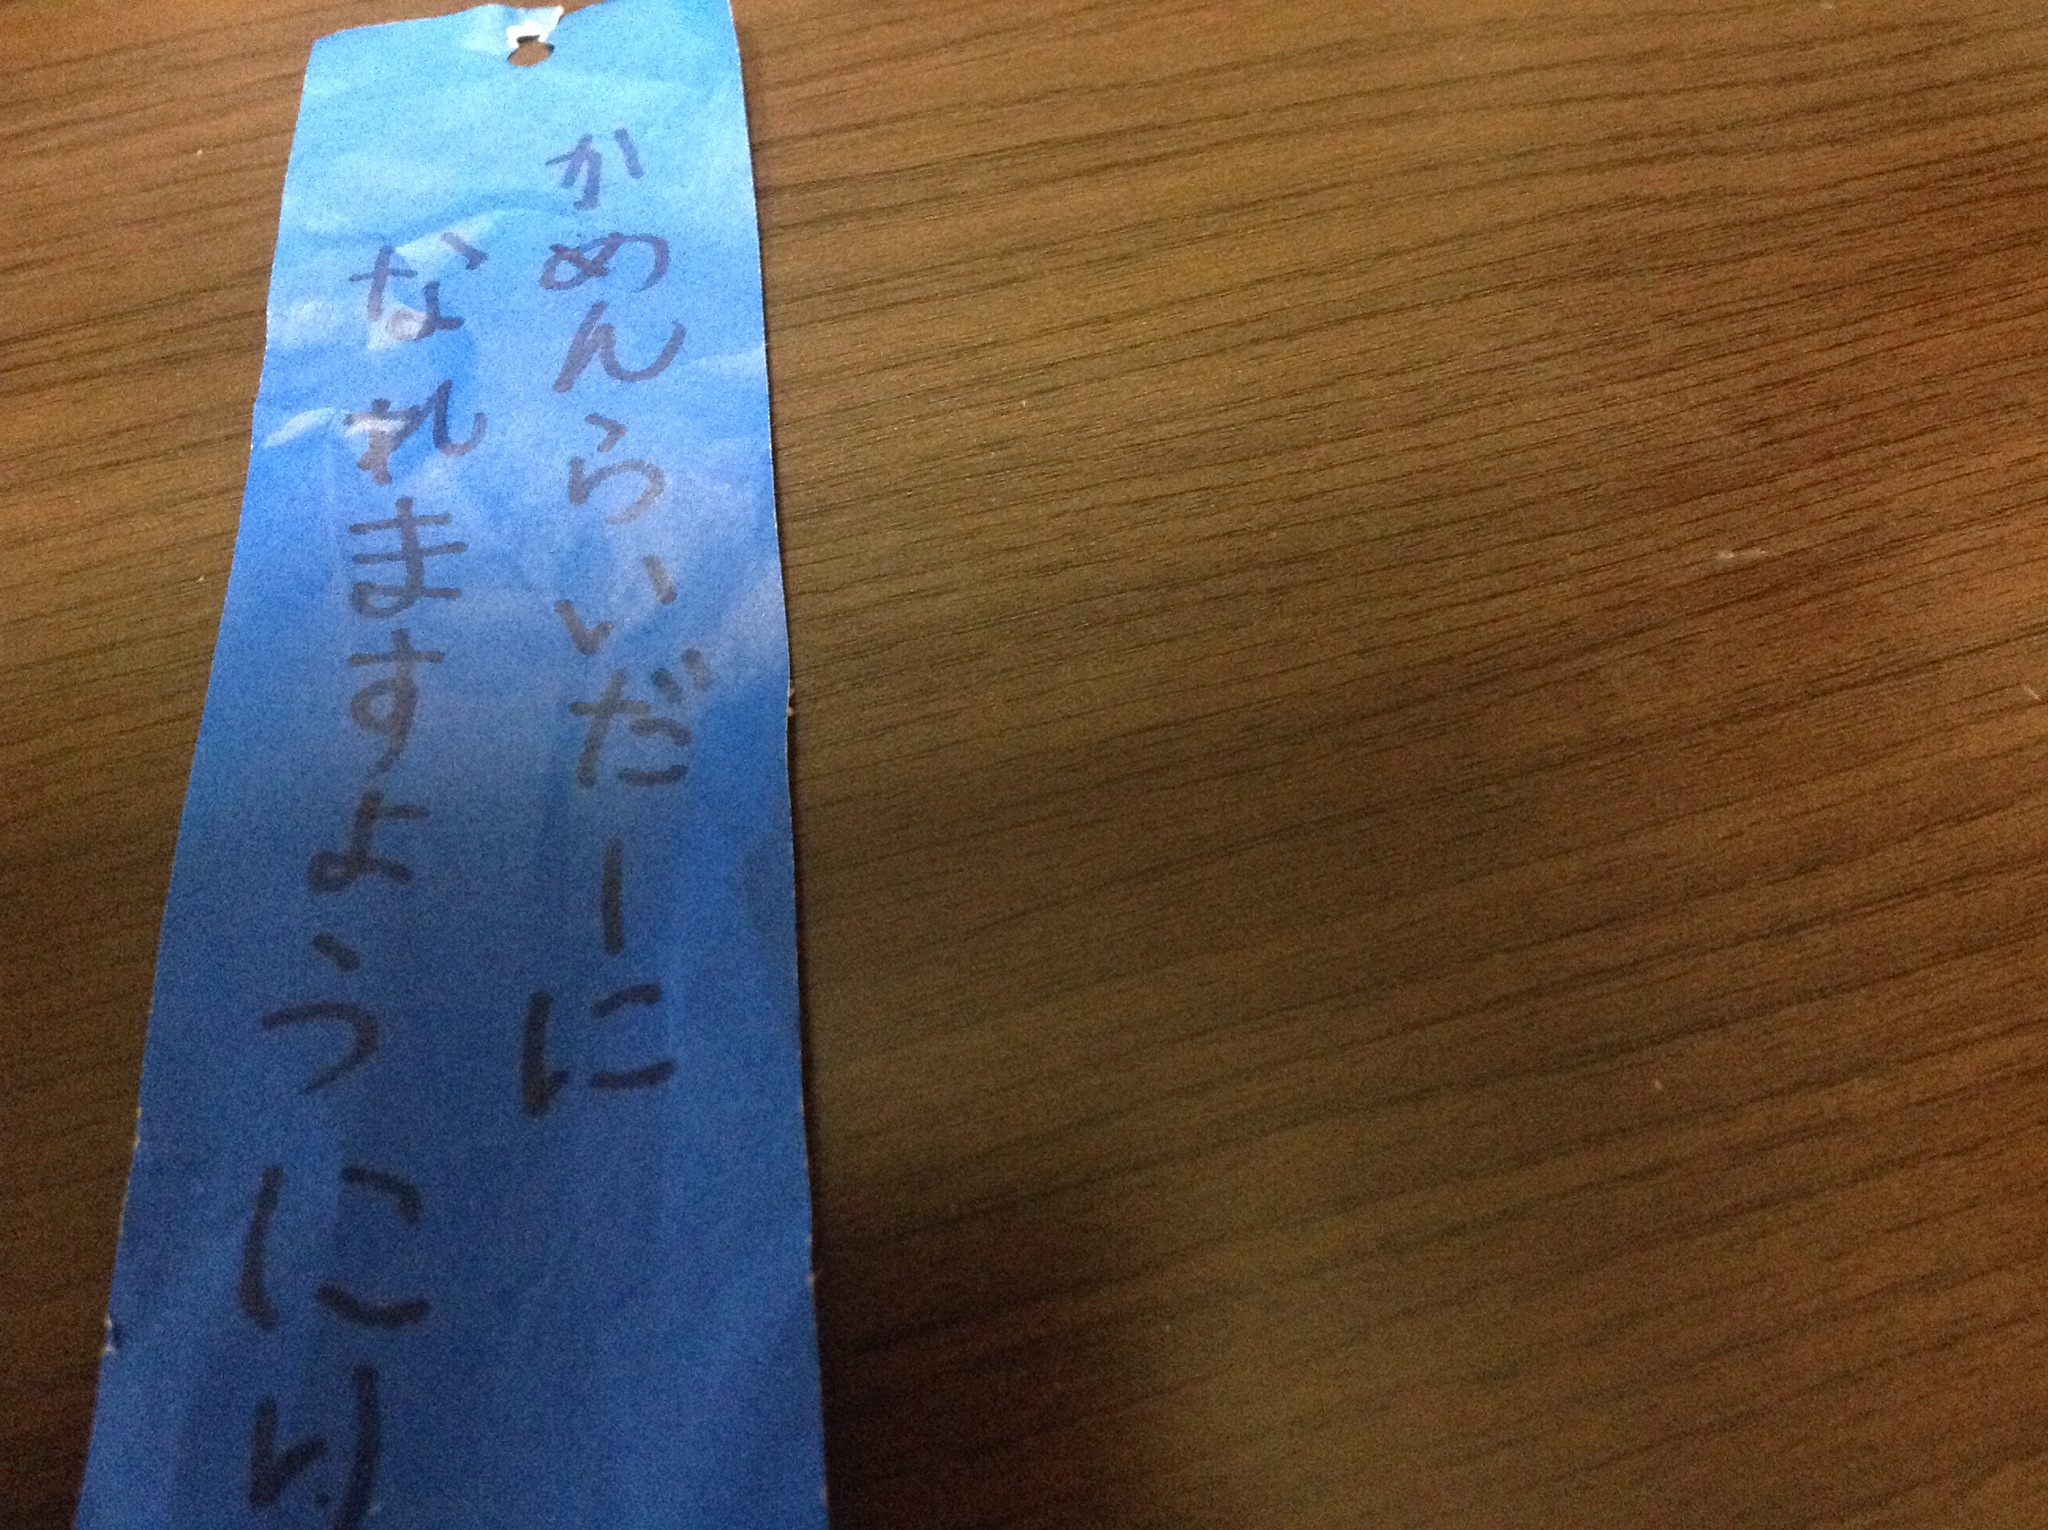 かめんらいだーに
なれますようにり